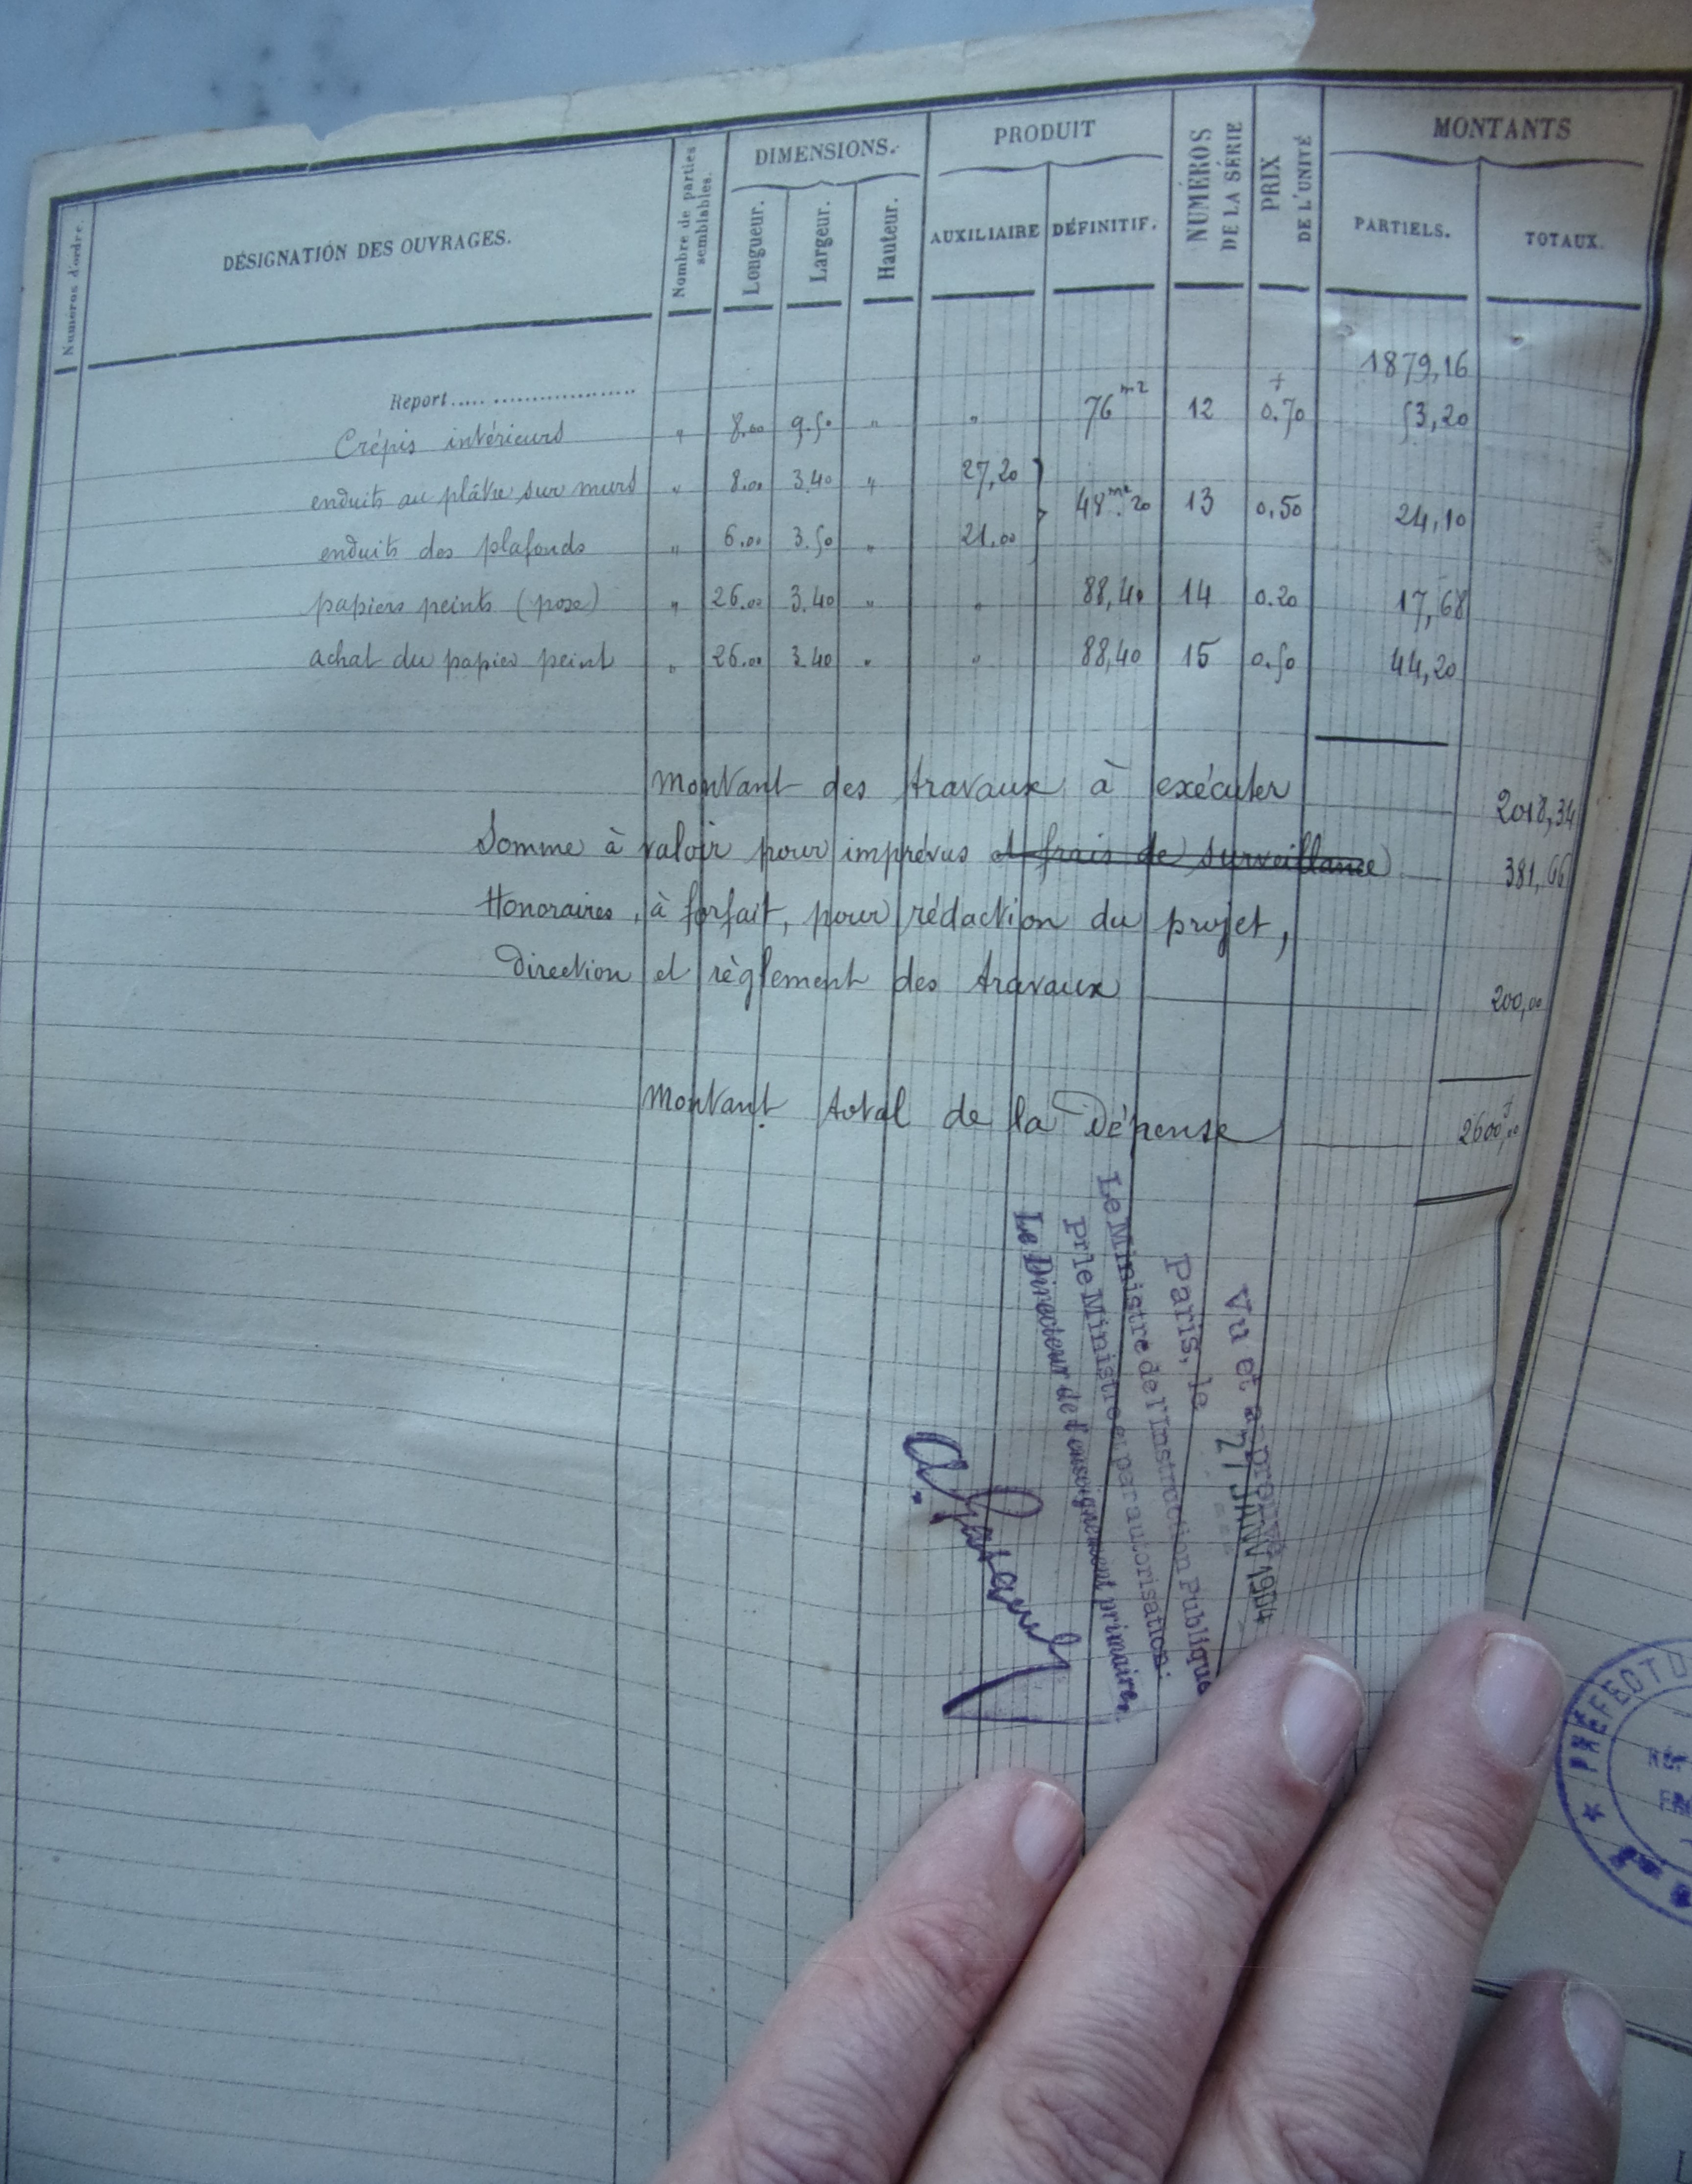 Numéros d'ordre.
DÉSIGNATION DES OUVRAGES.
Nombre de parties semblables.
DIMENSIONS.
Longueur.
Largeur.
Hauteur.
PRODUIT
AUXILIAIRE
DÉFINITIF.
NUMÉROS DE LA SÉRIE
PRIX DE L'UNITÉ
MONTANTS
PARTIELS.
TOTAUX.
Report..... ................... 1879,16
Crépis intérieurs " 8.00 9.50 " " 76 m2 12 0.70 53,20
enduits au plâtre sur murs " 8.00 3.40 " 27,20
48 m2. 20 13 0.50 24,10
enduits des plafonds " 6.00 3.50 " 21.00
papiers peints (pose) " 26.00 3.40 " " 88,40 14 0.20 17,68
achat du papier peint " 26.00 3.40 " " 88,40 15 0.50 44,20
Montant des travaux à exécuter 2018,34
Somme à valoir pour imprévus et frais de surveillance 381,66
Honoraires, à forfait, pour rédaction du projet,
Direction et règlement des travaux 200,00
Montant total de la Dépense 2600f,00
Vu et approuvé
Paris, le 27 JANV 1904
Le Ministre de l'Instruction Publique
Pr le Ministre et par autorisation:
Le Directeur de l'enseignement primaire,
PRÉFECTU